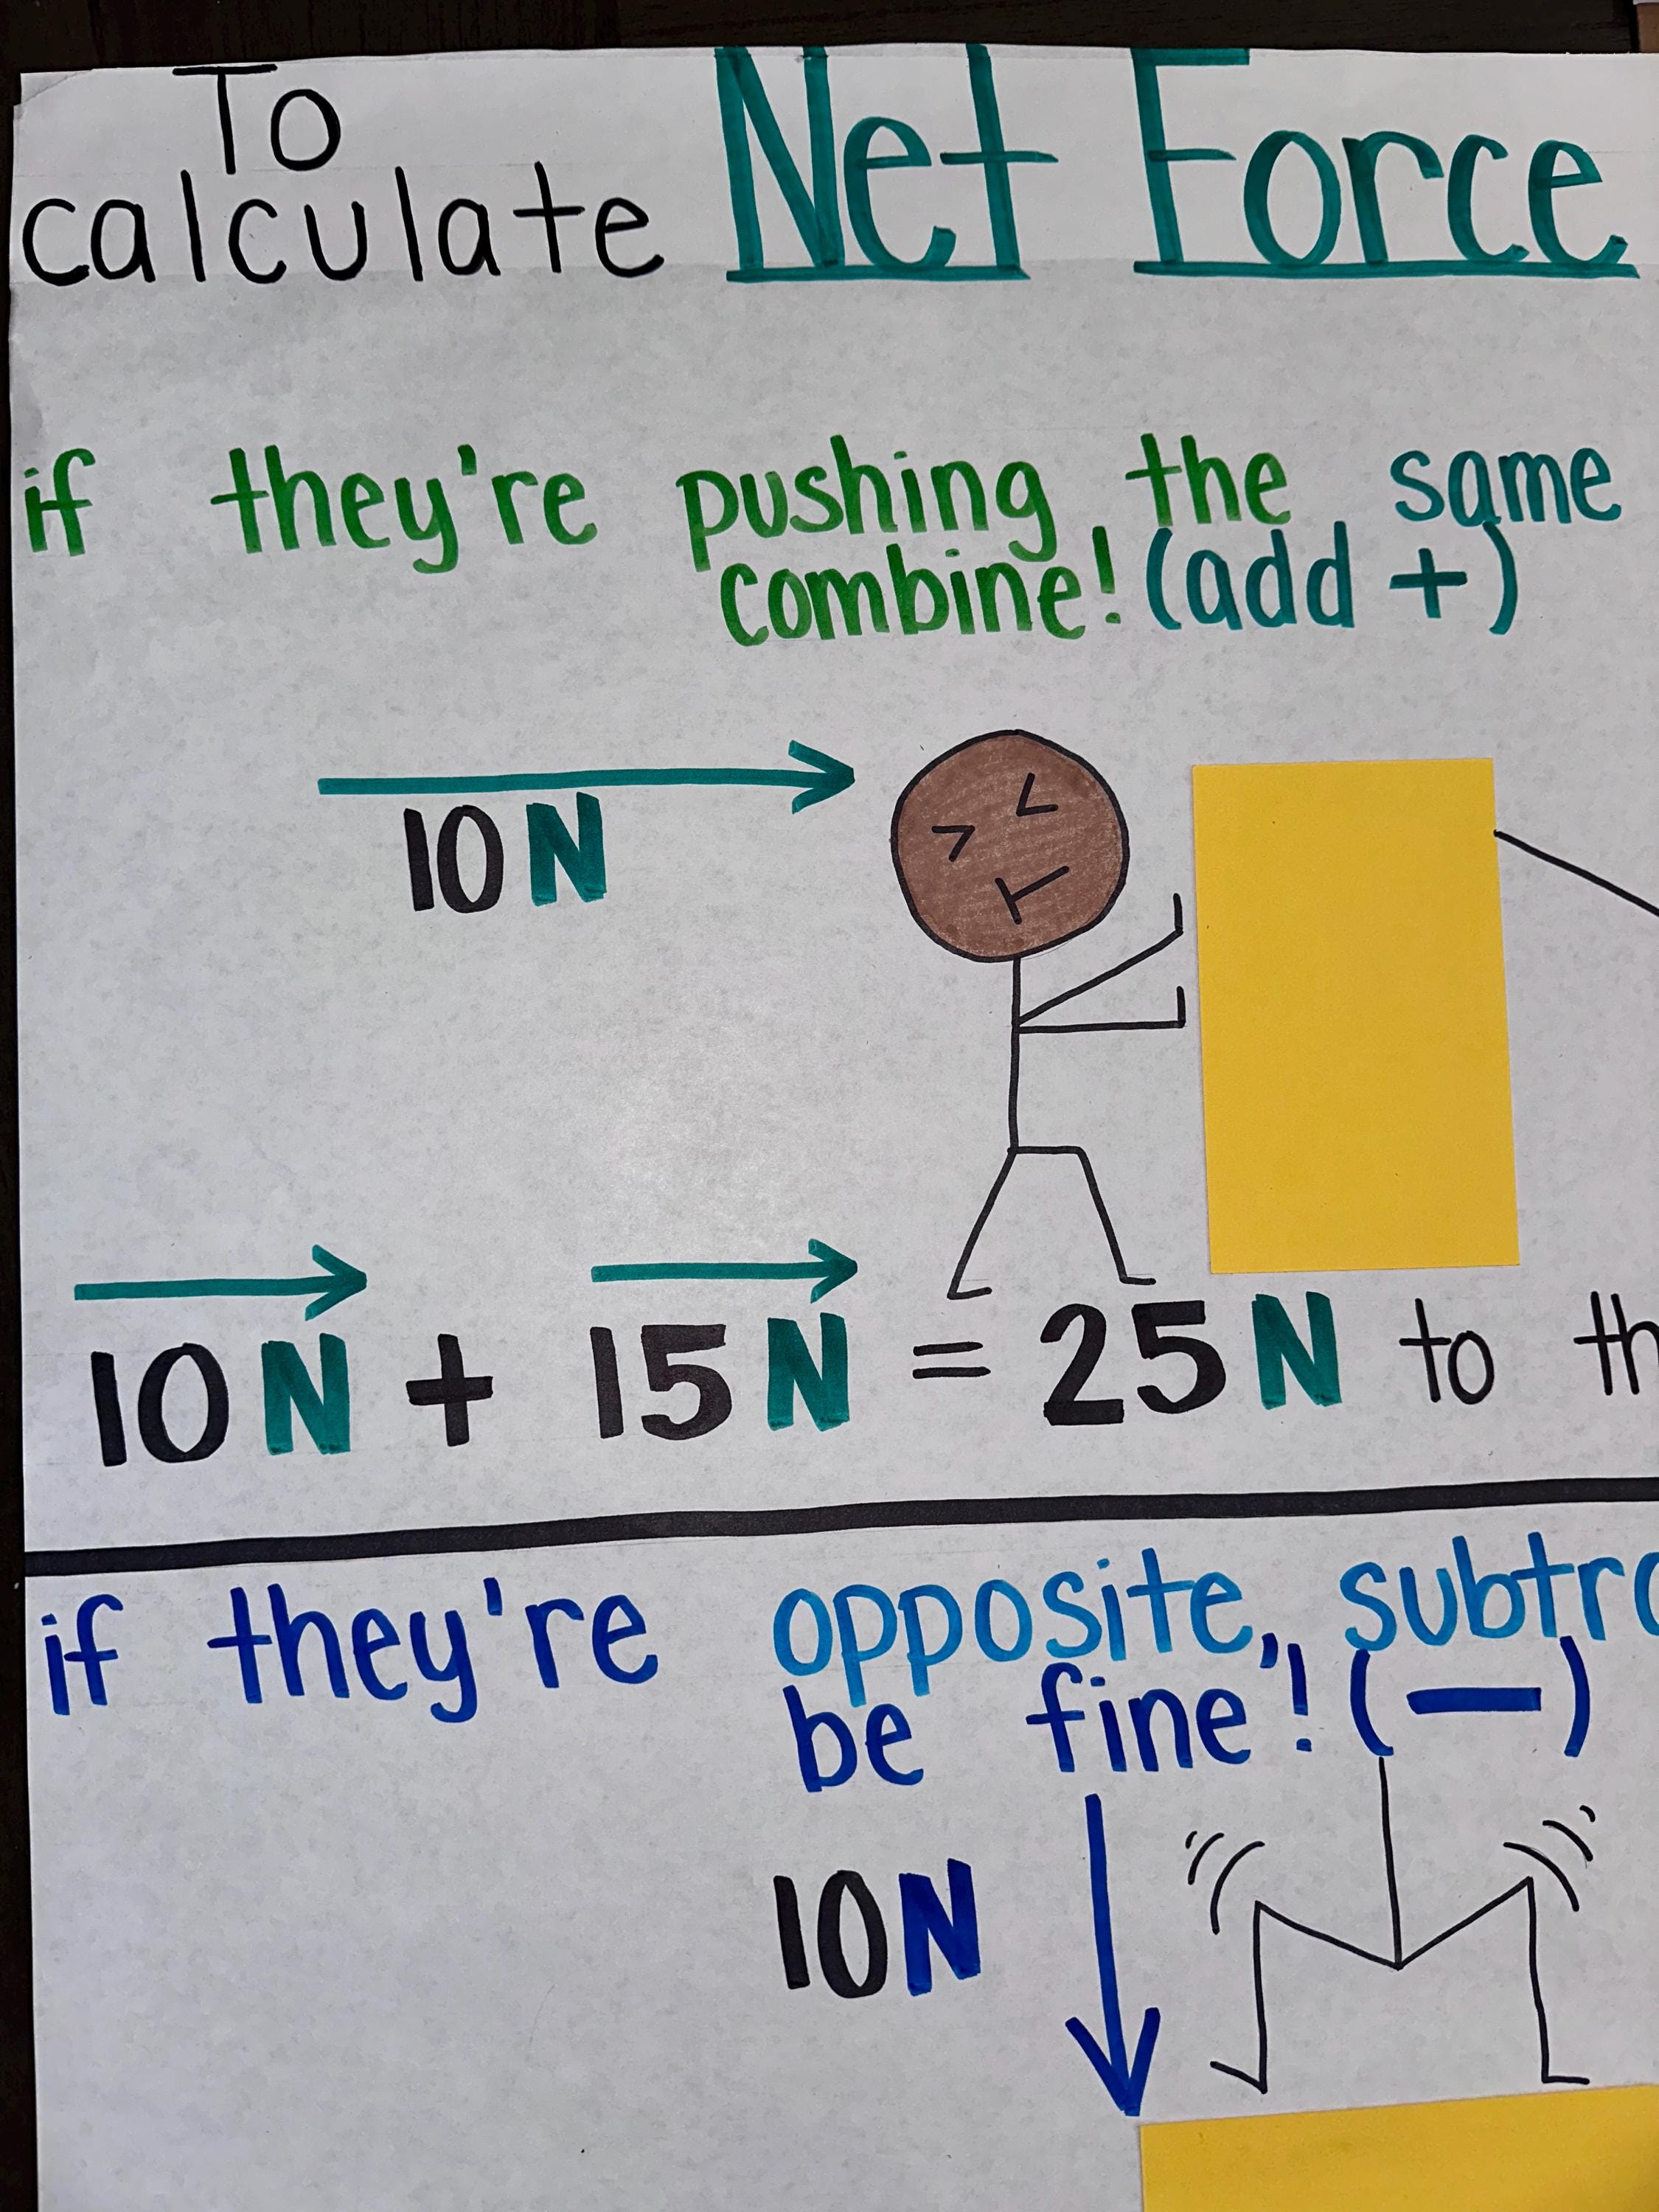 To
calculate Net Force
if they're pushing the same
combine! (add +)
10 N
10 N + 15 N = 25 N to
if they're opposite, subtr
be fine! (—)
10 N